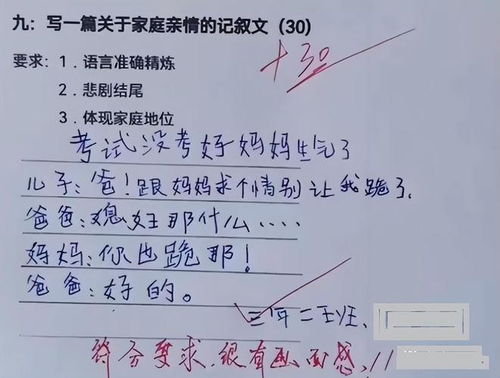 九：写一篇关于家庭亲情的记叙文（30）
+30
要求：1．语言准确精炼
2．悲剧结尾
3．体现家庭地位
考试没考好妈妈生气了
儿子：爸！跟妈妈求个情别让我跪了．
爸爸：媳妇那什么‥‥
妈妈：你也跪那！
爸爸：好的。
三年二班．
符合要求．很有画面感．！！